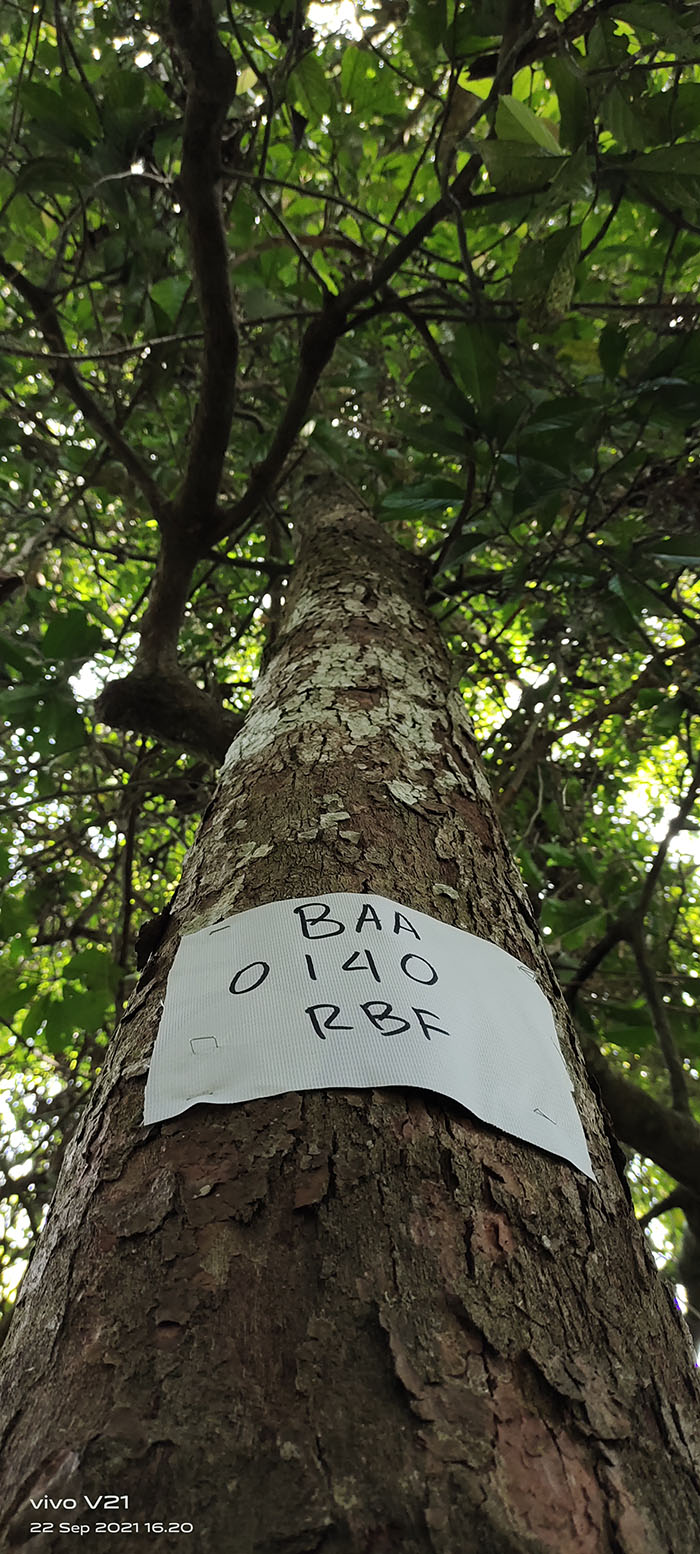 BAA
0140
RBF
vivo V21
22 Sep 2021 16.20